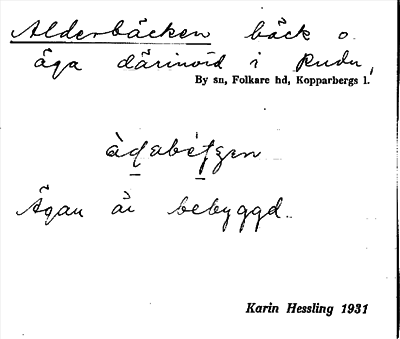 Alderbäcken bäck o.
äga därinvid i Rudu,
By sn, Folkare hd, Kopparbergs l.
Ägan är bebyggd.
Karin Hessling 1931